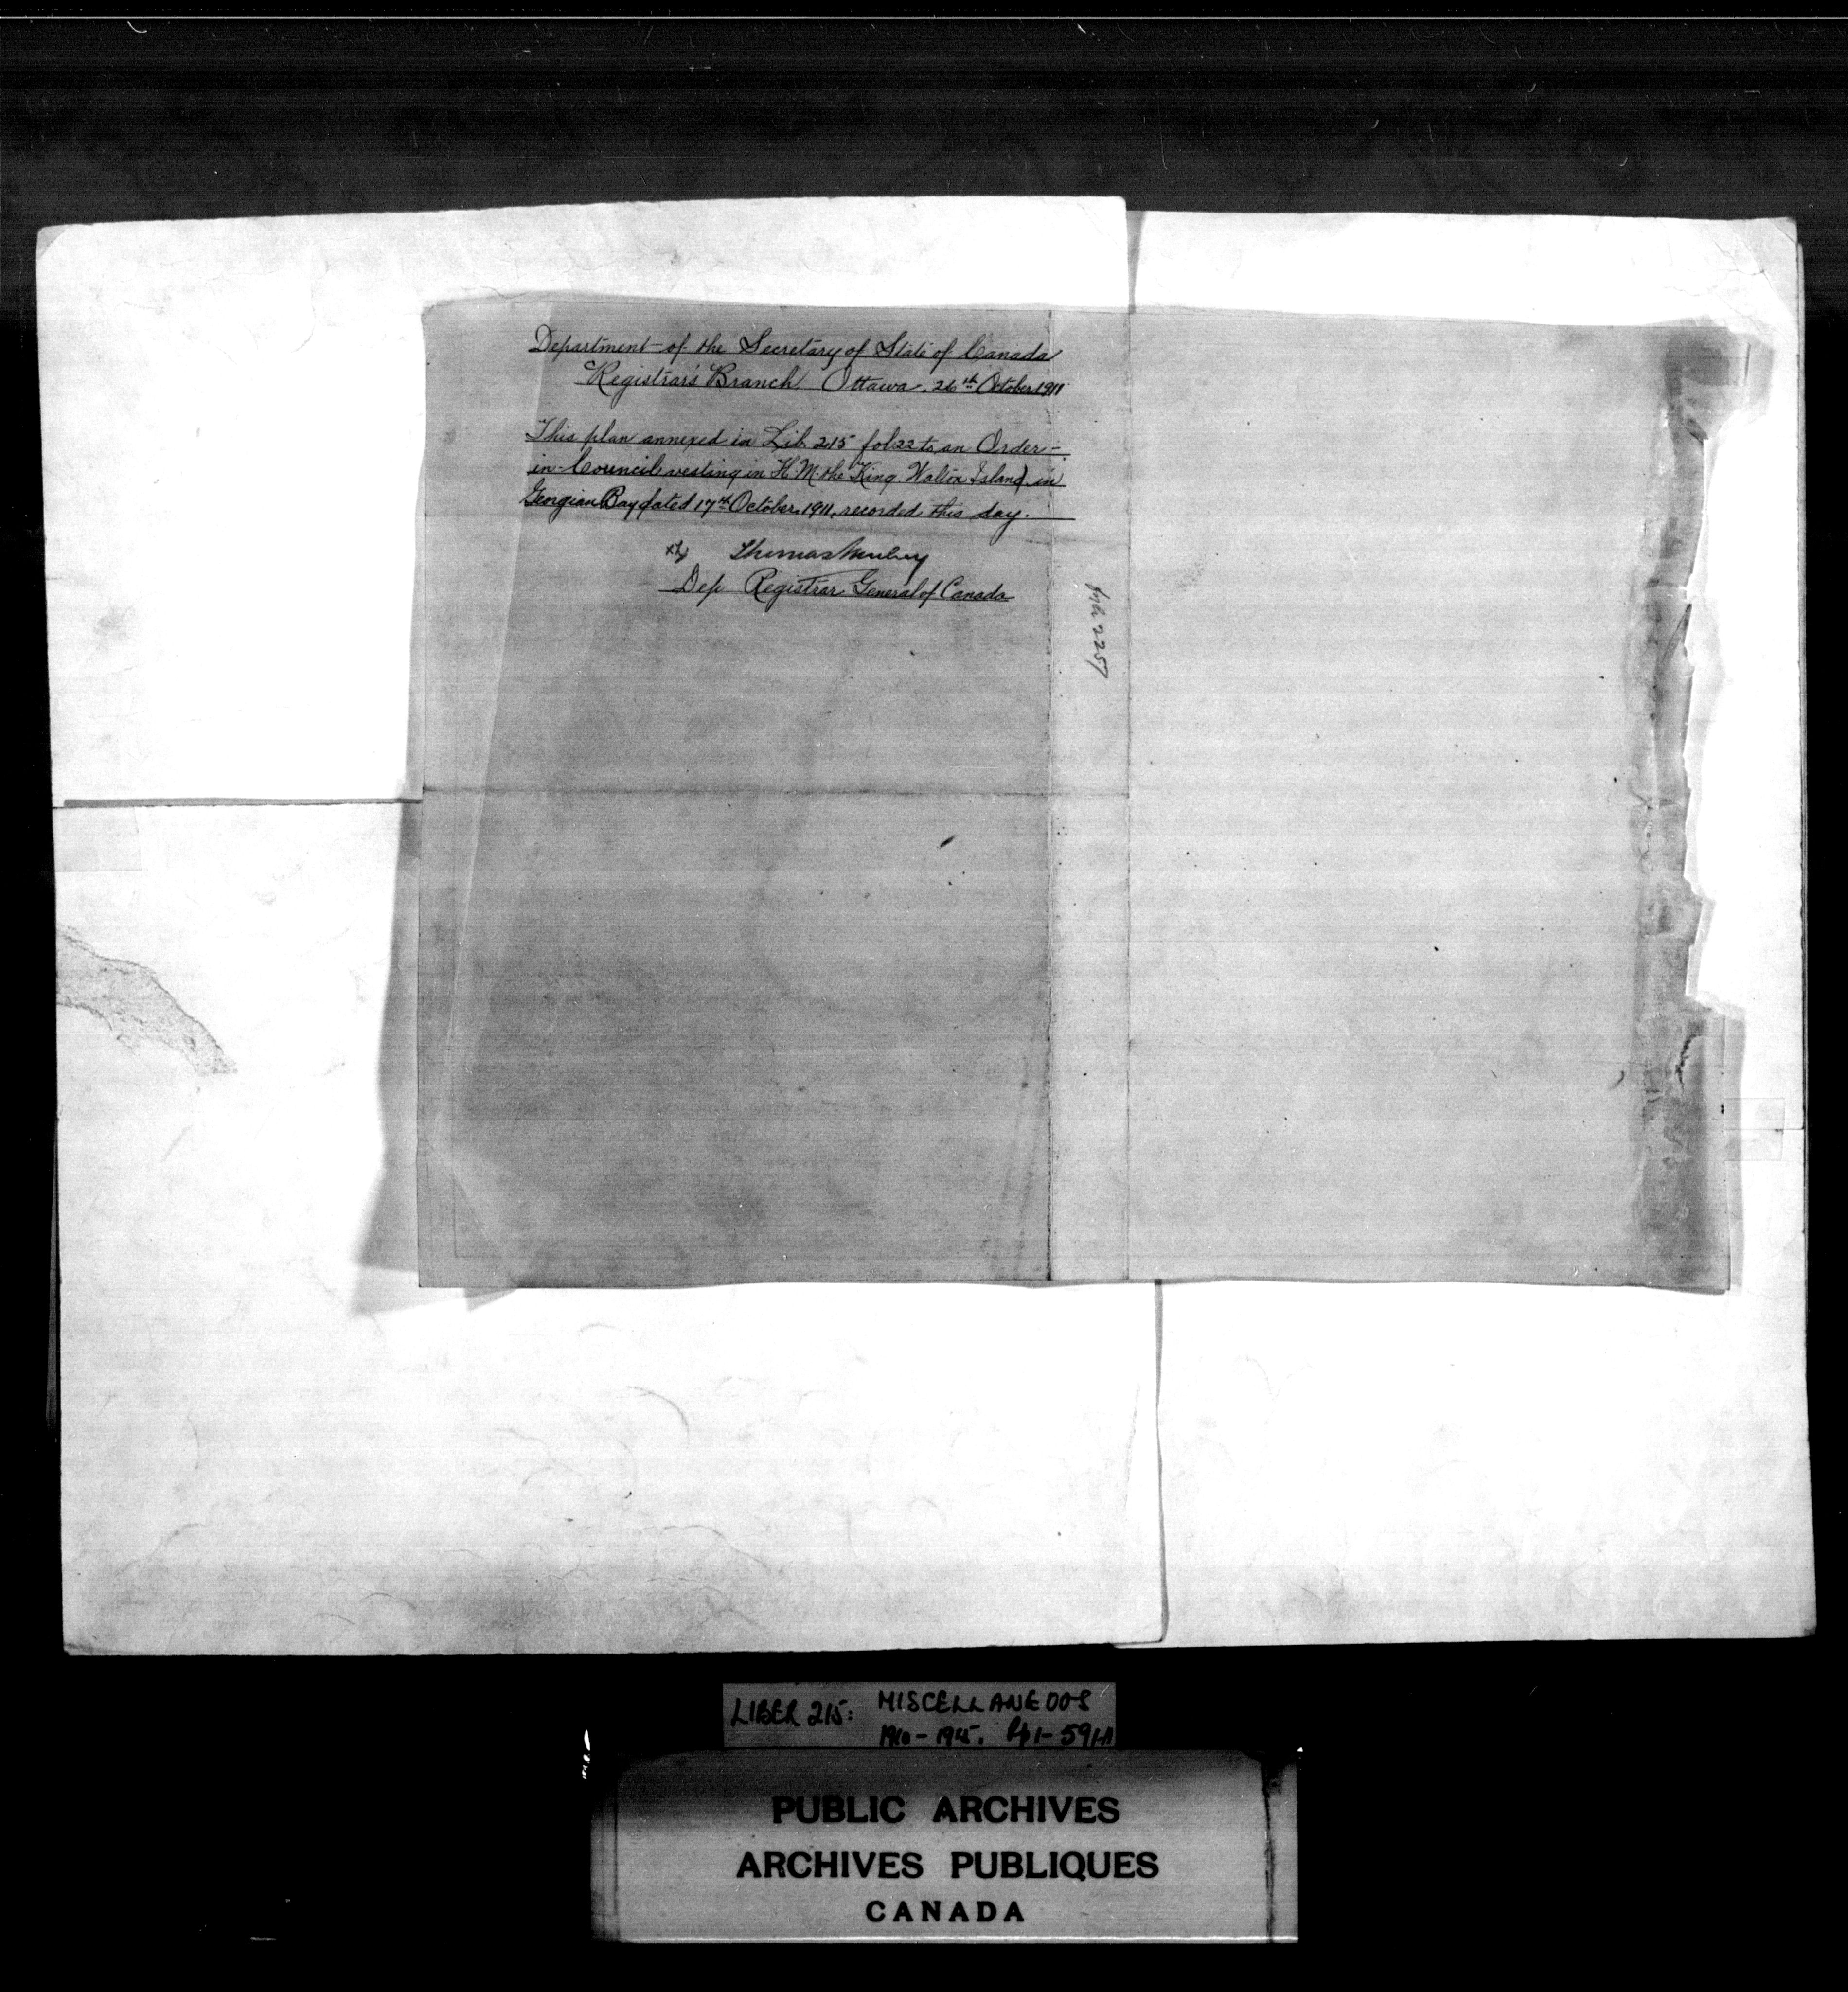 Department of the Secretary of State of Canada
Registrar's Branch Ottawa, 26th October 1911
This plan annexed in Lib 215 fol 22 to an Order-
in-Council vesting in H.M. the King Walton Island in
Georgian Bay dated 17th October, 1911, recorded this day.
Thomas Mulvey
Dep Registrar General of Canada
LIBER 215: MISCELLANEOUS
PUBLIC ARCHIVES
ARCHIVES PUBLIQUES
CANADA